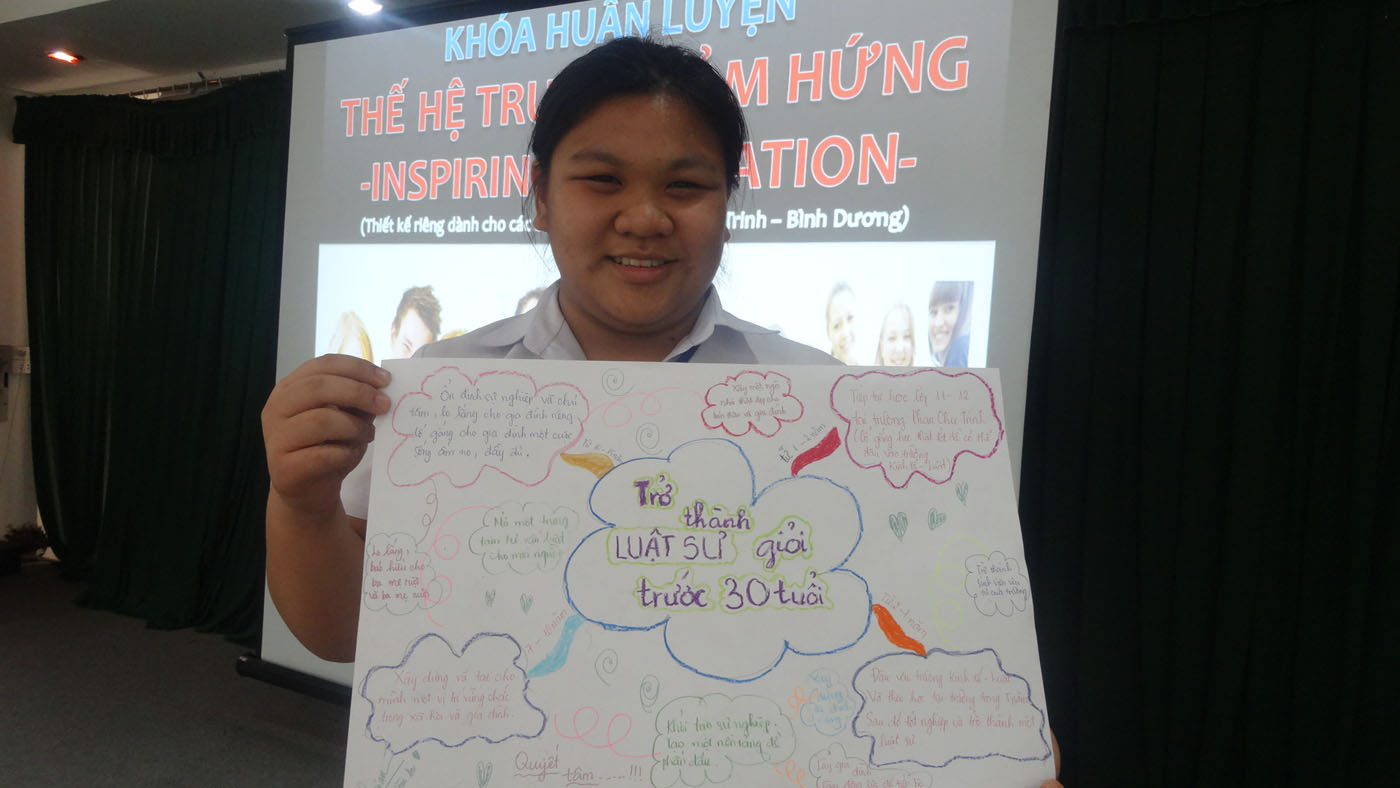 KHÓA HUẤN LUYỆN
THẾ HỆ TRU ẢM HỨNG
-INSPIRIN ATION-
(Thiết kế riêng dành cho các Trinh – Bình Dương)
Ổn định sự nghiệp và chú
tâm, lo lắng cho gia đình riêng
cố gắng cho gia đình một cuộc
sống ấm no, đầy đủ.
Xây một ngôi
nhà thật đẹp cho
bản thân và gia đình
Tiếp tục học lớp 11 - 12
tại trường Phan Chu Trinh
(Cố gắng học thật tốt để có thể
đậu vào trường
Kinh tế - Luật)
từ 1 - 2 năm
Trở
thành
LUẬT SƯ giỏi
trước 30 tuổi
Mở một trung
tâm tư vấn luật
cho mọi người
Lo lắng,
báo hiếu cho
ba mẹ ruột
và ba mẹ
Trở thành
sinh viên
trường
năm
- 10 năm
Xây dựng và tạo cho
mình một vị trí vững chắc
trong xã hội và gia đình.
Khởi tạo sự nghiệp.
tạo một nền tảng để
phấn đấu.
Xây
dựng
gia đình
riêng
Đậu vào trường Kinh tế - Luật
Và theo học tại trường trong 4 năm
Sau đó tốt nghiệp và trở thành một
luật sư
Quyết
tâm.....!!!
gia đình